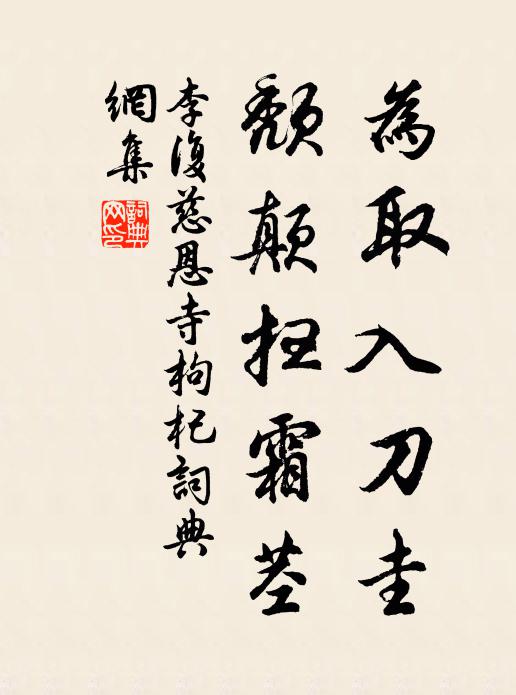 為取入刀圭
頽顛抂霜茎
李復慈恩寺枸杞詞典
網集
詞典
网印